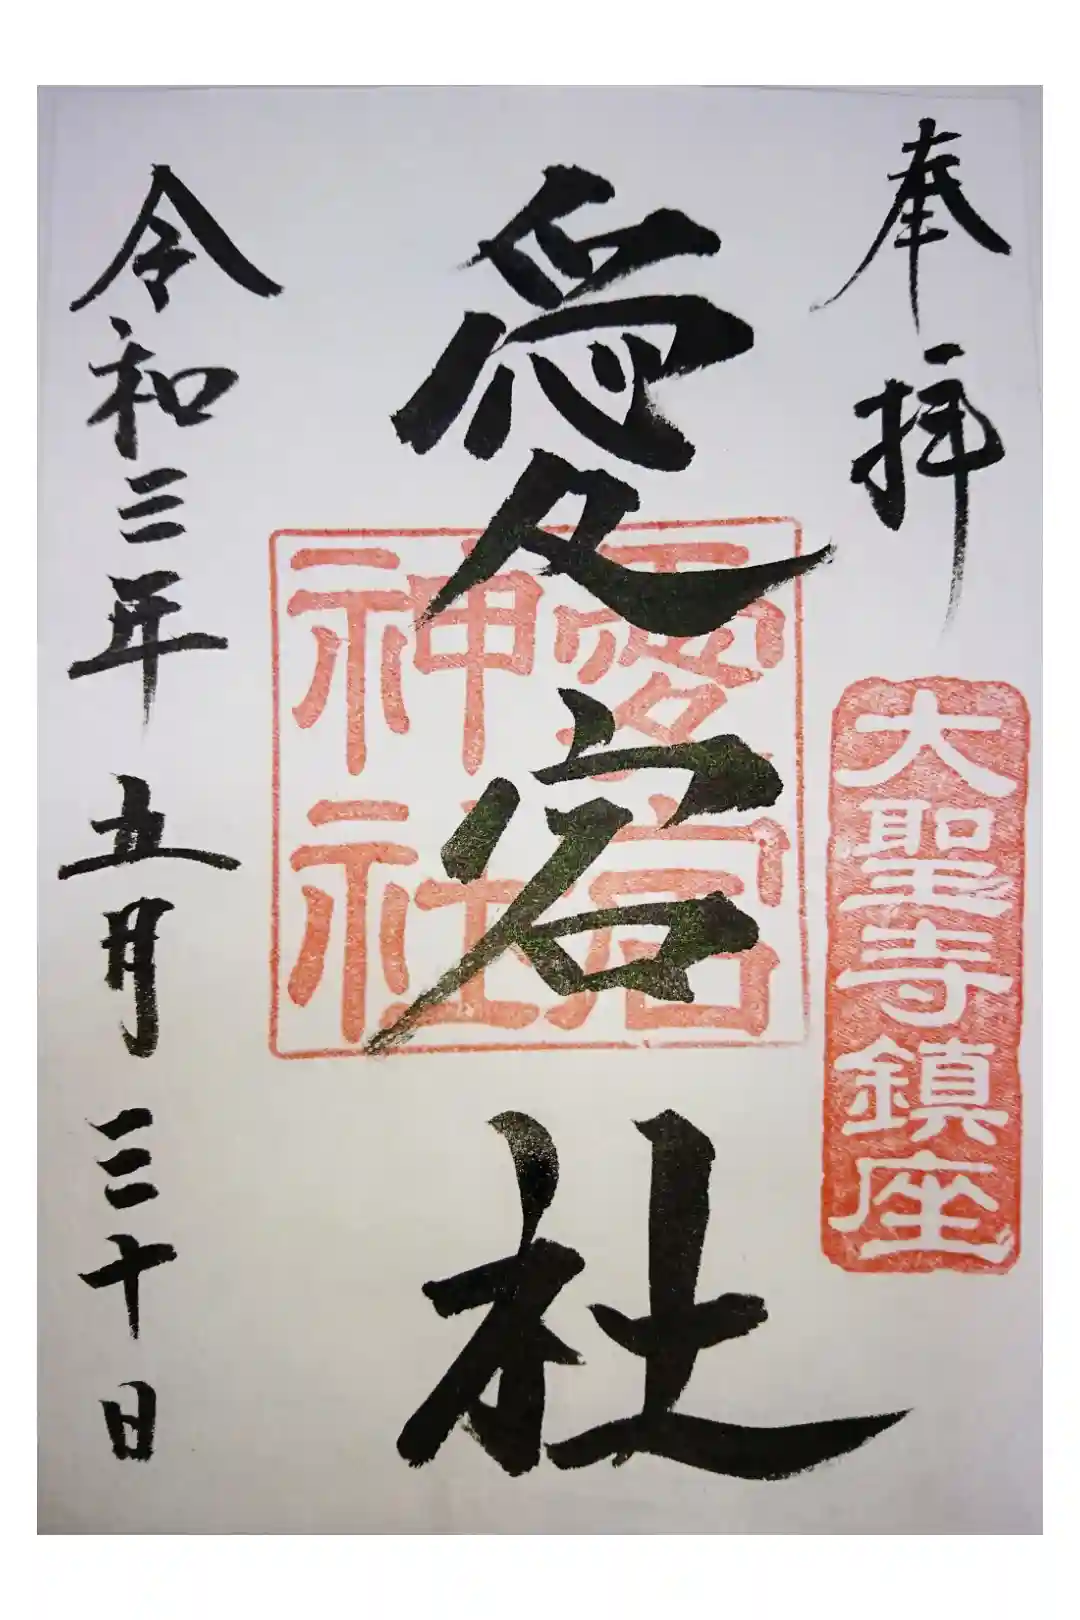 奉拝
大聖寺鎮座
愛宕社
愛宕
神社
令和三年五月三十日